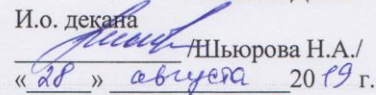 И.о. декана
/Шьюрова Н.А./
«28» августа 2019 г.